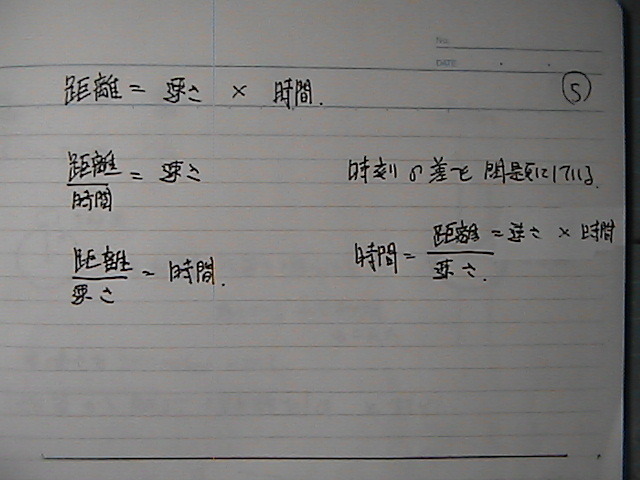 No.
DATE
距離 = 速さ × 時間.
⑤
距離/時間 = 速さ
時刻の差を問題にしている.
距離/速さ = 時間.
時間 = 距離/速さ. = 速さ × 時間